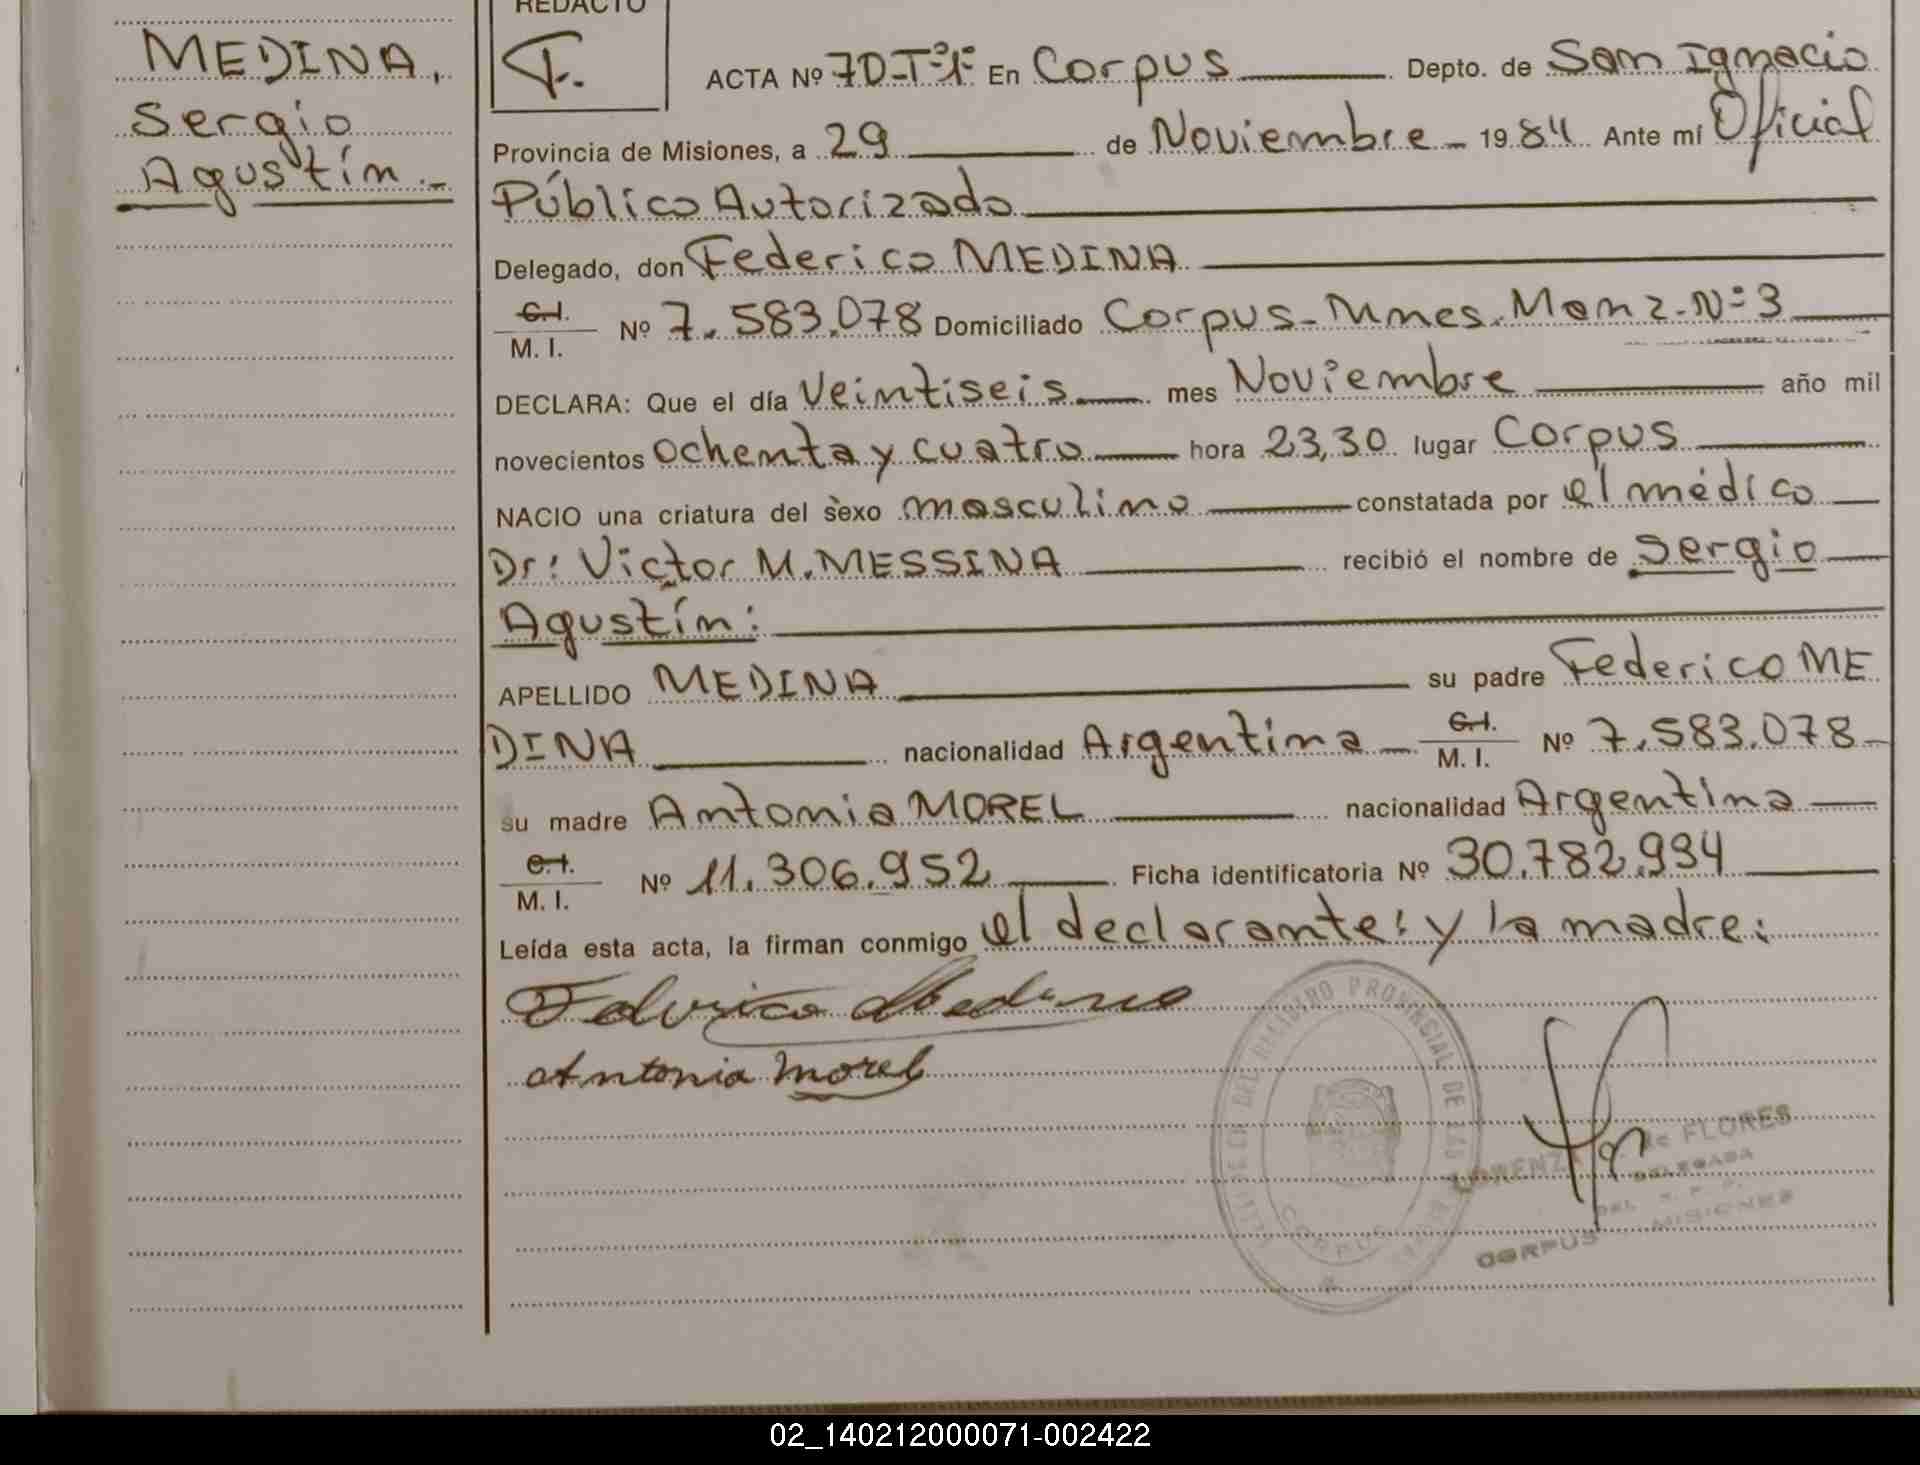 MEDINA,
Sergio
Agustín.-
REDACTO
F.
ACTA Nº 70-Tº1º En Corpus Depto. de San Ignacio
Provincia de Misiones, a 29 de Noviembre - 1984 Ante mí Oficial
Público Autorizado
Delegado, don Federico MEDINA
C.I.
M. I. Nº 7.583.078 Domiciliado Corpus-Mnes. Manz. Nº 3
DECLARA: Que el día Veintiseis mes Noviembre año mil
novecientos ochenta y cuatro hora 23,30 lugar Corpus
NACIO una criatura del sexo masculino constatada por el médico
Dr: Victor M. MESSINA recibió el nombre de Sergio
Agustín:
APELLIDO MEDINA su padre Federico ME
DINA nacionalidad Argentina C.I. M. I. Nº 7.583.078
su madre Antonia MOREL nacionalidad Argentina
C.I.
M. I. Nº 11.306.952 Ficha identificatoria Nº 30.782.934
Leída esta acta, la firman conmigo el declarante: y la madre:
Federico Medina
Antonia Morel
DEL REGISTRO PROVINCIAL DE LAS
CORPUS
LORENZA de FLORES
DELEGADA
DEL R. P. P.
CORPUS MISIONES
02_140212000071-002422